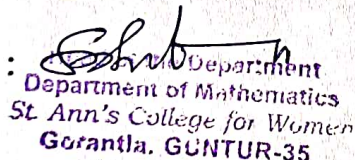 :
Department
Department of Mathematics
St. Ann's College for Women
Gorantla. GUNTUR-35